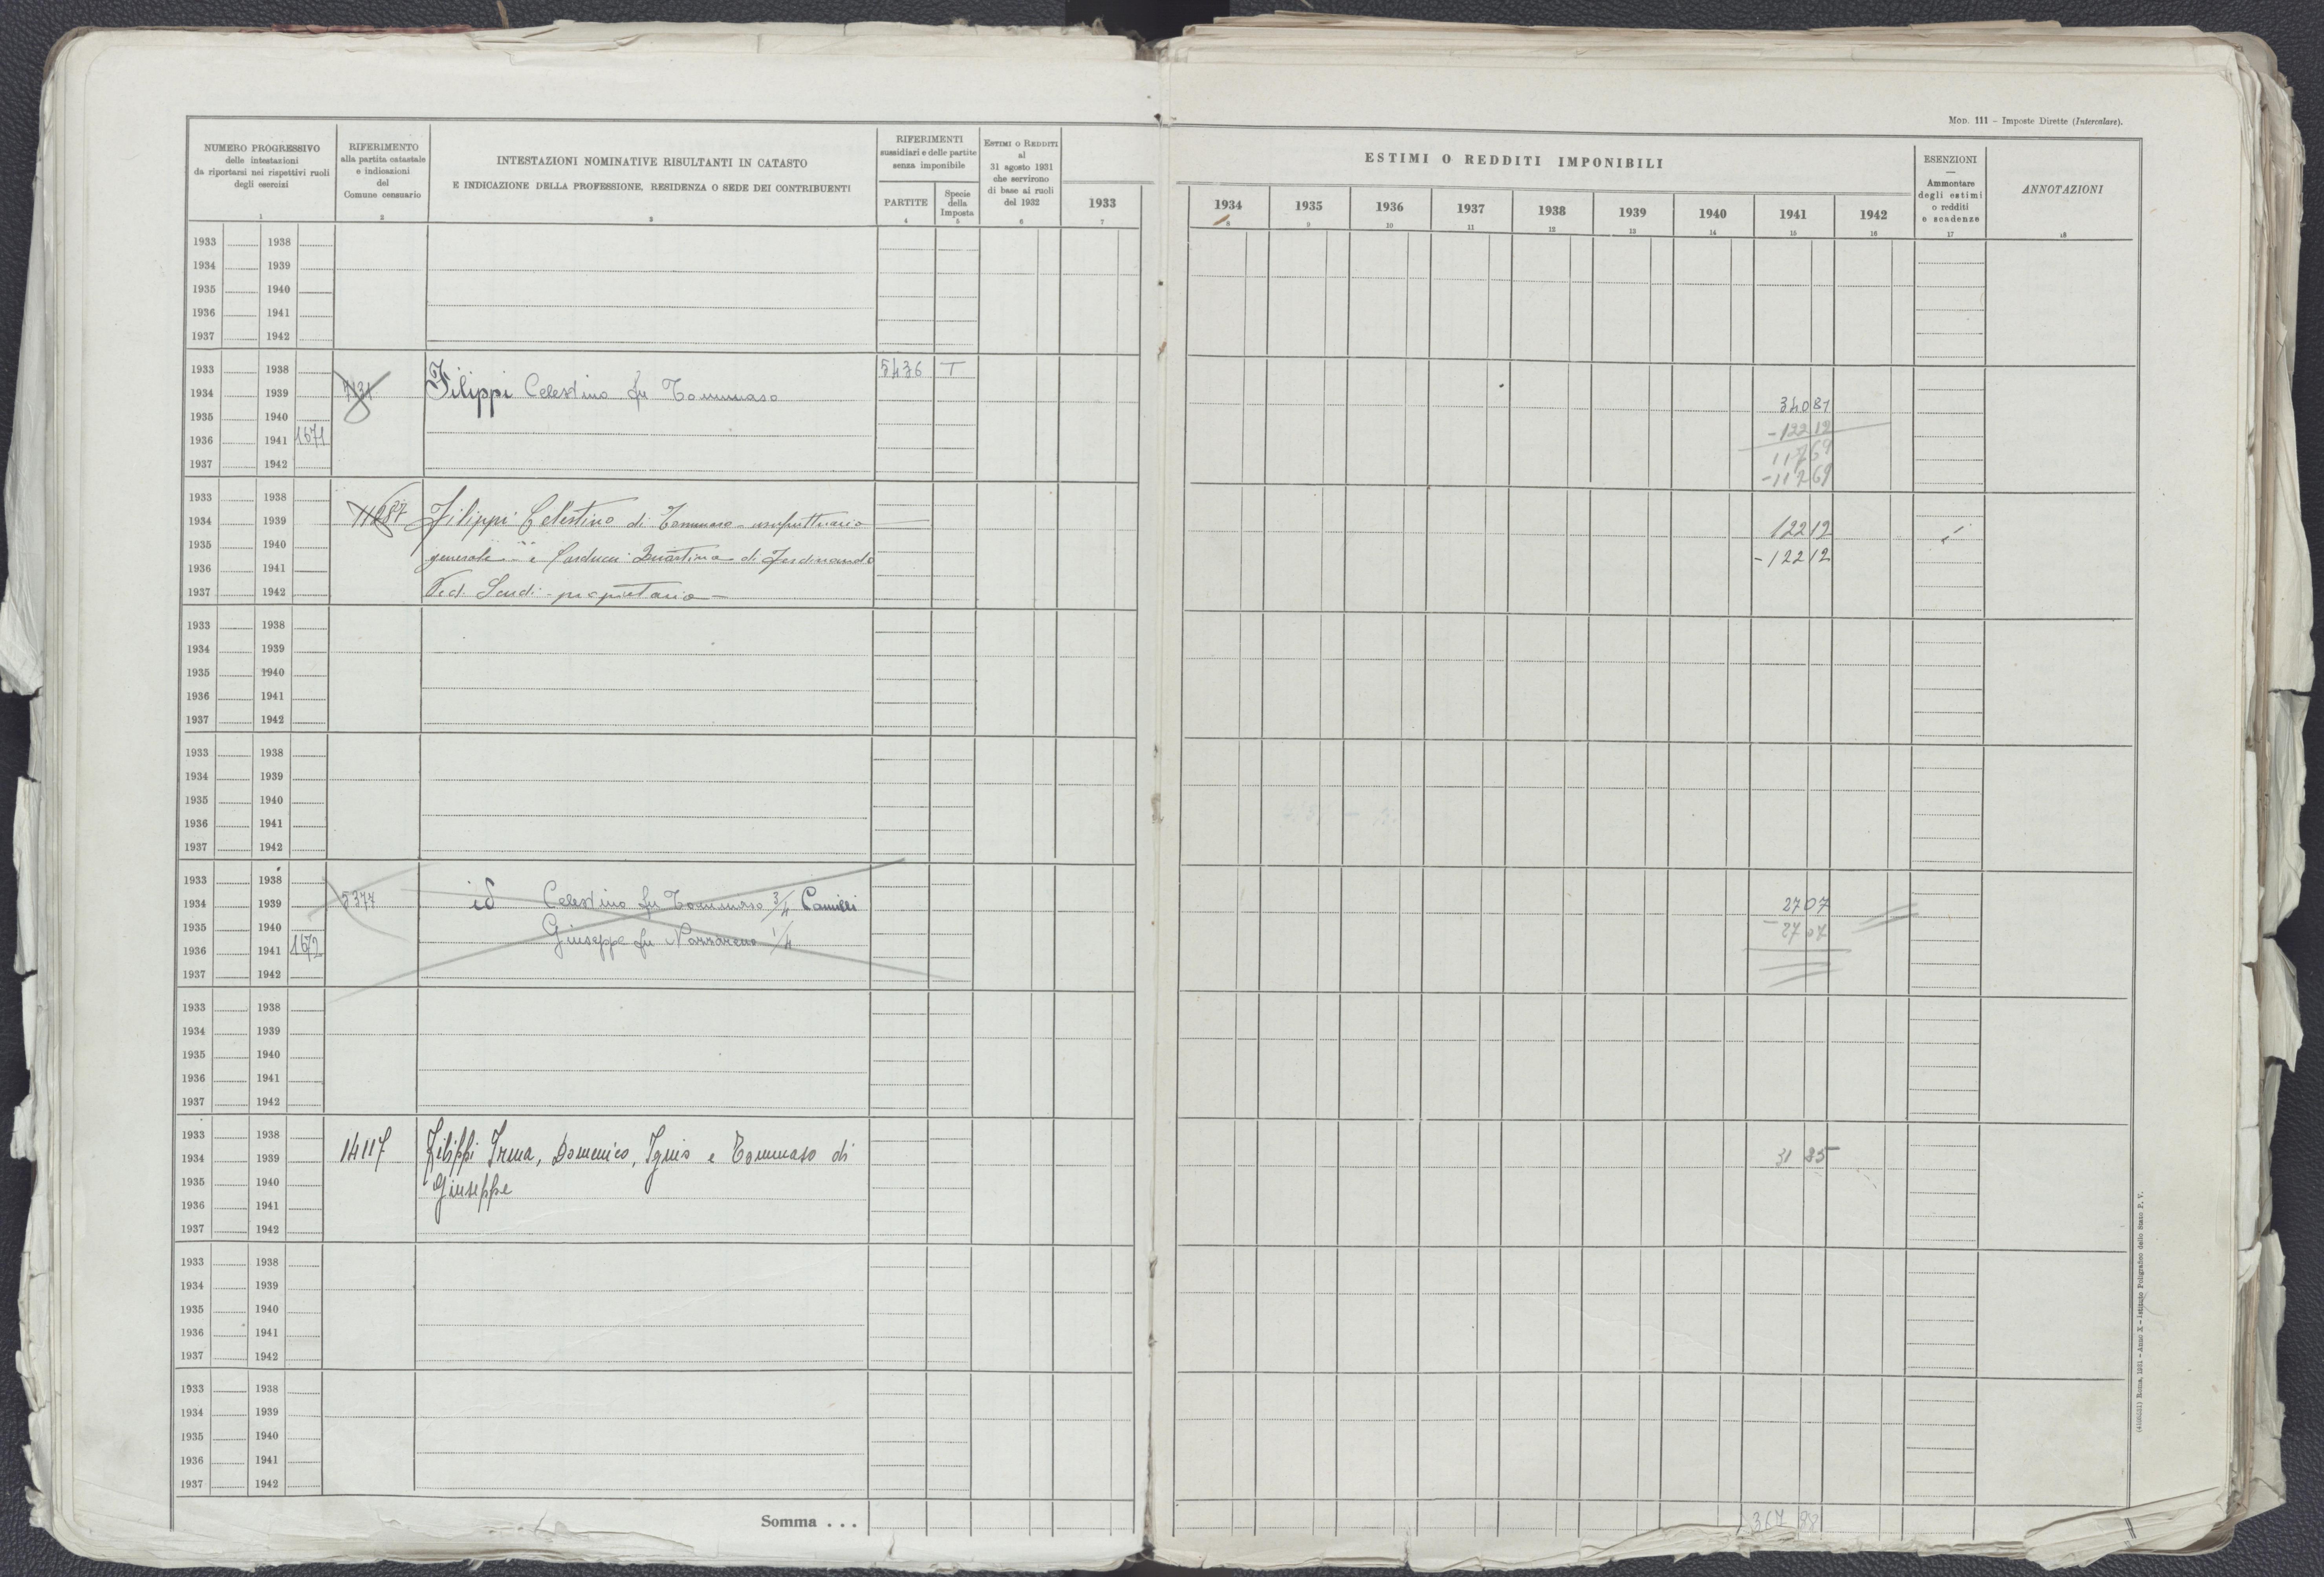 MOD. 111 – Imposte Dirette (Intercalare).
NUMERO PROGRESSIVO
delle intestazioni
da riportarsi nei rispettivi ruoli
degli esercizi
1
RIFERIMENTO
alla partita catastale
e indicazioni
del
Comune censuario
2
INTESTAZIONI NOMINATIVE RISULTANTI IN CATASTO
E INDICAZIONE DELLA PROFESSIONE, RESIDENZA O SEDE DEI CONTRIBUENTI
3
RIFERIMENTI
sussidiari e delle partite
senza imponibile
PARTITE
4
Specie
della
Imposta
5
ESTIMI O REDDITI
al
31 agosto 1931
che servirono
di base ai ruoli
del 1932
6
1933
7
ESTIMI O REDDITI IMPONIBILI
1934 1935 1936 1937 1938 1939 1940 1941 1942
8 9 10 11 12 13 14 15 16
ESENZIONI
—
Ammontare
degli estimi
o redditi
e scadenze
17
ANNOTAZIONI
18
1933 1938
1934 1939
1935 1940
1936 1941
1937 1942
1933 1938 5436 T
1934 1939 7131 Filippi Celestino fu Tommaso
1935 1940 34081
1936 1941 1671 -12212
1937 1942
-11769
1933 1938
1934 1939 Filippi Celestino di Tommaso - usufruttuario 12212
1935 1940 generale - e Carducci Quartina di Ferdinando -12212
1936 1941
1937 1942 Ved. - proprietaria -
1933 1938
1934 1939
1935 1940
1936 1941
1937 1942
1933 1938
1934 1939
1935 1940
1936 1941
1937 1942
1933 1938
1934 1939 5377 id Celestino fu Tommaso 3/4 Camilli 2707
1935 1940 Giuseppe fu Nazzareno 1/4 - 2707
1936 1941 1672
1937 1942
1933 1938
1934 1939
1935 1940
1936 1941
1937 1942
1933 1938
1934 1939 14117 Filippi Irma, Domenico, Iginio e Tommaso di 31 85
1935 1940 Giuseppe
1936 1941
1937 1942
1933 1938
1934 1939
1935 1940
1936 1941
1937 1942
1933 1938
1934 1939
1935 1940
1936 1941
1937 1942
Somma . . .
Roma, 1931 – Anno X – Istituto Poligrafico dello Stato P. V.